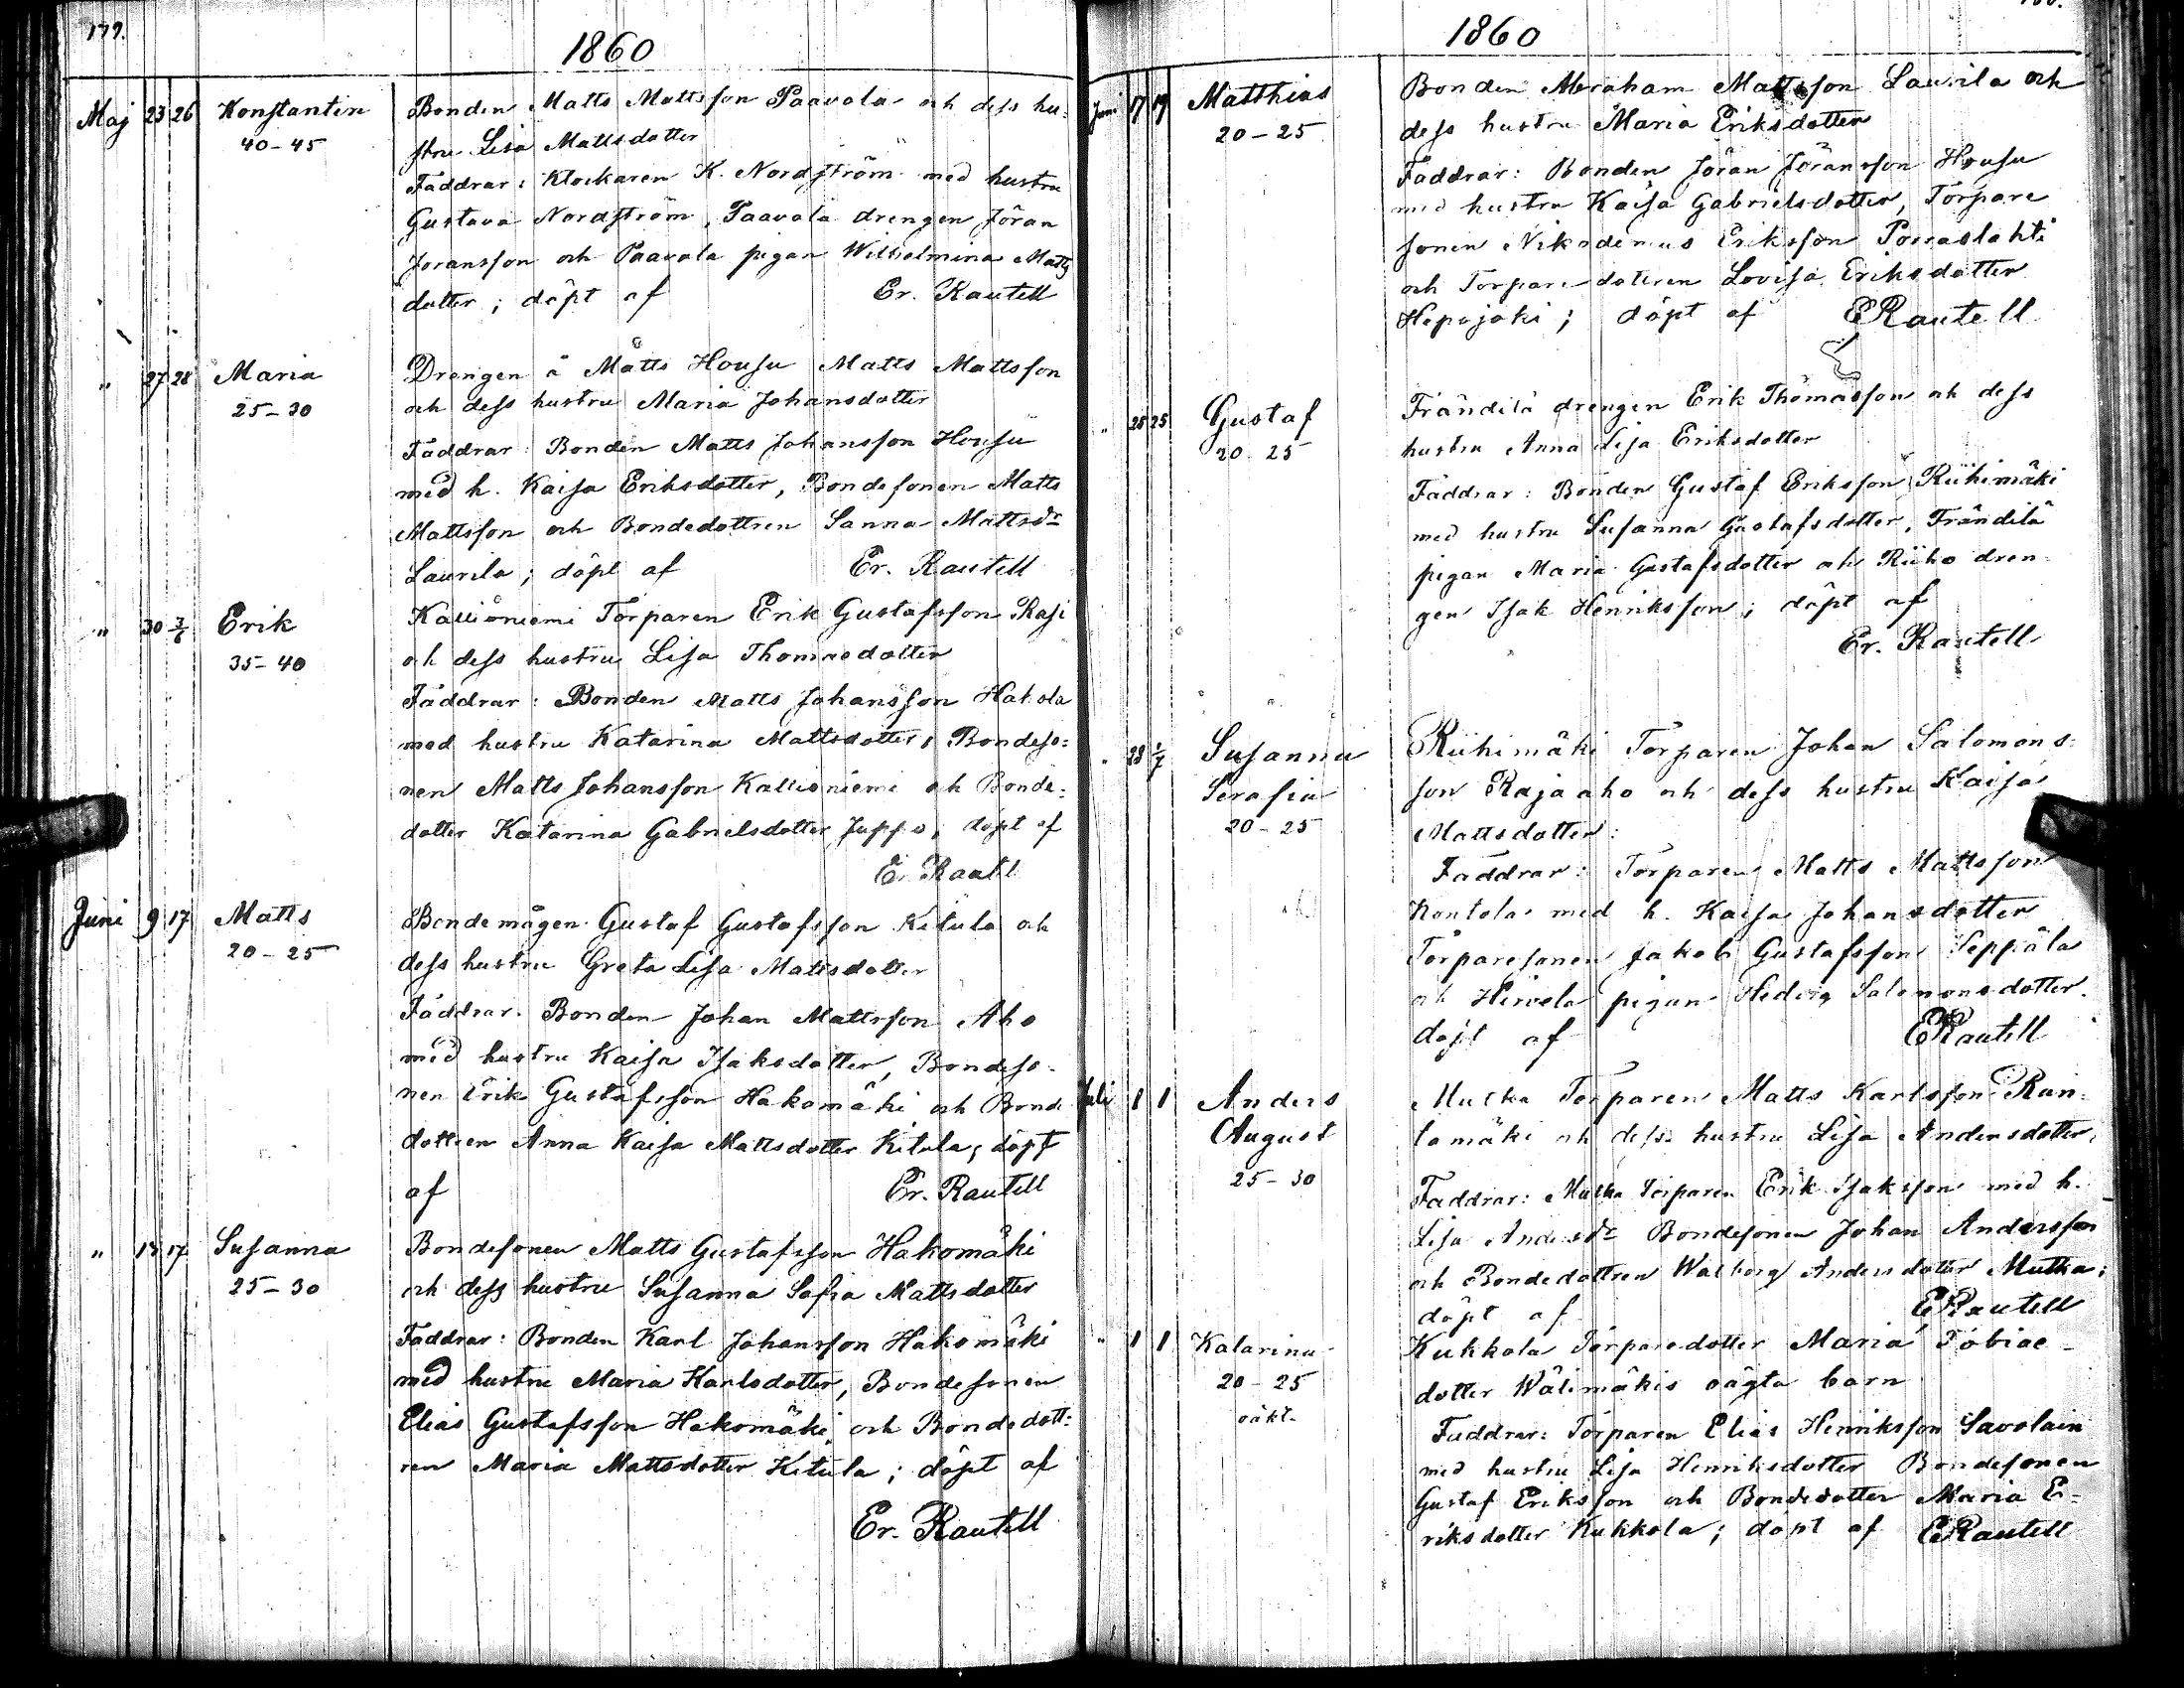 179.
1860
Maj 23 26 Konstantin
40-45
Bonden Matts Mattsson Paavola och dess hu:
stru Lisa Mattsdotter
Faddrar: Klockaren K. Nordström med hustru
Gustava Nordström, Paavola drengen Jöran
Joransson och Paavola pigan Wilhelmina Matts
dotter; döpt af Er. Rautell
" 27 28 Maria
25-30
Drengen å Matts Housu Matts Mattsson
och dess hustru Maria Johansdotter
Faddrar: Bonden Matts Johansson Housu
med h. Kaisa Eriksdotter, Bondesonen Matts
Mattsson och Bondedottren Sanna Mattsdr
Laurila; döpt af Er. Rautell
" 30 3/6 Erik
35-40
Kallioniemi Torparen Erik Gustafsson Rasi
och dess hustru Lisa Thomasdotter
Faddrar: Bonden Matts Johansson Hakola
med hustru Katarina Mattsdotter, Bondeso:
nen Matts Johansson Kallioniemi och Bonde:
dotter Katarina Gabrielsdotter Juppo, döpt af
Er. Rautl
Juni 9 17 Matts
20-25
Bondemågen Gustaf Gustafsson Kitula och
dess hustru Greta Lisa Mattsdotter
Faddrar: Bonden Johan Mattsson Aho
med hustru Kaisa Isaksdotter, Bondeso-
nen Erik Gustafsson Hakomäki och Bonde
dottren Anna Kaisa Mattsdotter Kitula; döpt
af Er. Rautell
" 15 17 Susanna
25-30
Bondesonen Matts Gustafsson Hakomäki
och dess hustru Susanna Sofia Mattsdotter
Faddrar: Bonden Karl Johansson Hakomäki
med hustru Maria Karlsdotter, Bondesonen
Elias Gustafsson Hakomäki och Bondedott:
ren Maria Mattsdotter Kitula; döpt af
Er. Rautell
1860
Juni 17 19 Matthias
20-25
Bonden Abraham Mattsson Laurila och
dess hustru Maria Eriksdotter
Faddrar: Bonden Jöran Jöransson Housu
med hustru Kaisa Gabrielsdotter, Torpare
sonen Nikodemus Eriksson Porraslahti
och Torparedotteren Lovisa Eriksdotter
Hepojoki; döpt af ERautell
" 25 25 Gustaf
20 25
Frändilä drengen Erik Thomasson och dess
hustru Anna Lisa Eriksdotter
Faddrar: Bonden Gustaf Eriksson Riihimäki
med hustru Susanna Gustafsdotter, Frändilä
pigan Maria Gustafsdotter och Riiho dren
gen Isak Henriksson; döpt af
Er. Rautell
" 28 1/7 Susanna
Serafia
20-25
Riihimäki Torparen Johan Salomons:
son Rajaaho och dess hustru Kaisa
Mattsdotter:
Faddrar: Torparen Matts Mattsson
Kontola med h. Kaisa Johansdotter
Torparesonen Jakob Gustafsson Seppälä
och Hirvela pigan Hedvig Salomonsdotter.
döpt af ERautell
Juli 1 1 Anders
August
25-30
Mutka Torparen Matts Karlsson Ran-
tamäki och dess hustru Lisa Andersdotter,
Faddrar: Mutka Torparen Erik Isaksson med h.
Lisa Andersdr Bondesonen Johan Andersson
och Bondedottren Walborg Andersdotter Mutka;
döpt af ERautell
" 1 1 Katarina
20-25
oäkt.
Kukkola Torparedotter Maria Tobiae-
dotter Wälimäkis oägta barn
Faddrar: Torparen Elias Henriksson Savolain
med hustru Lisa Henriksdotter Bondesonen
Gustaf Eriksson och Bondedotter Maria E-
riksdotter Kukkola; döpt af ERautell